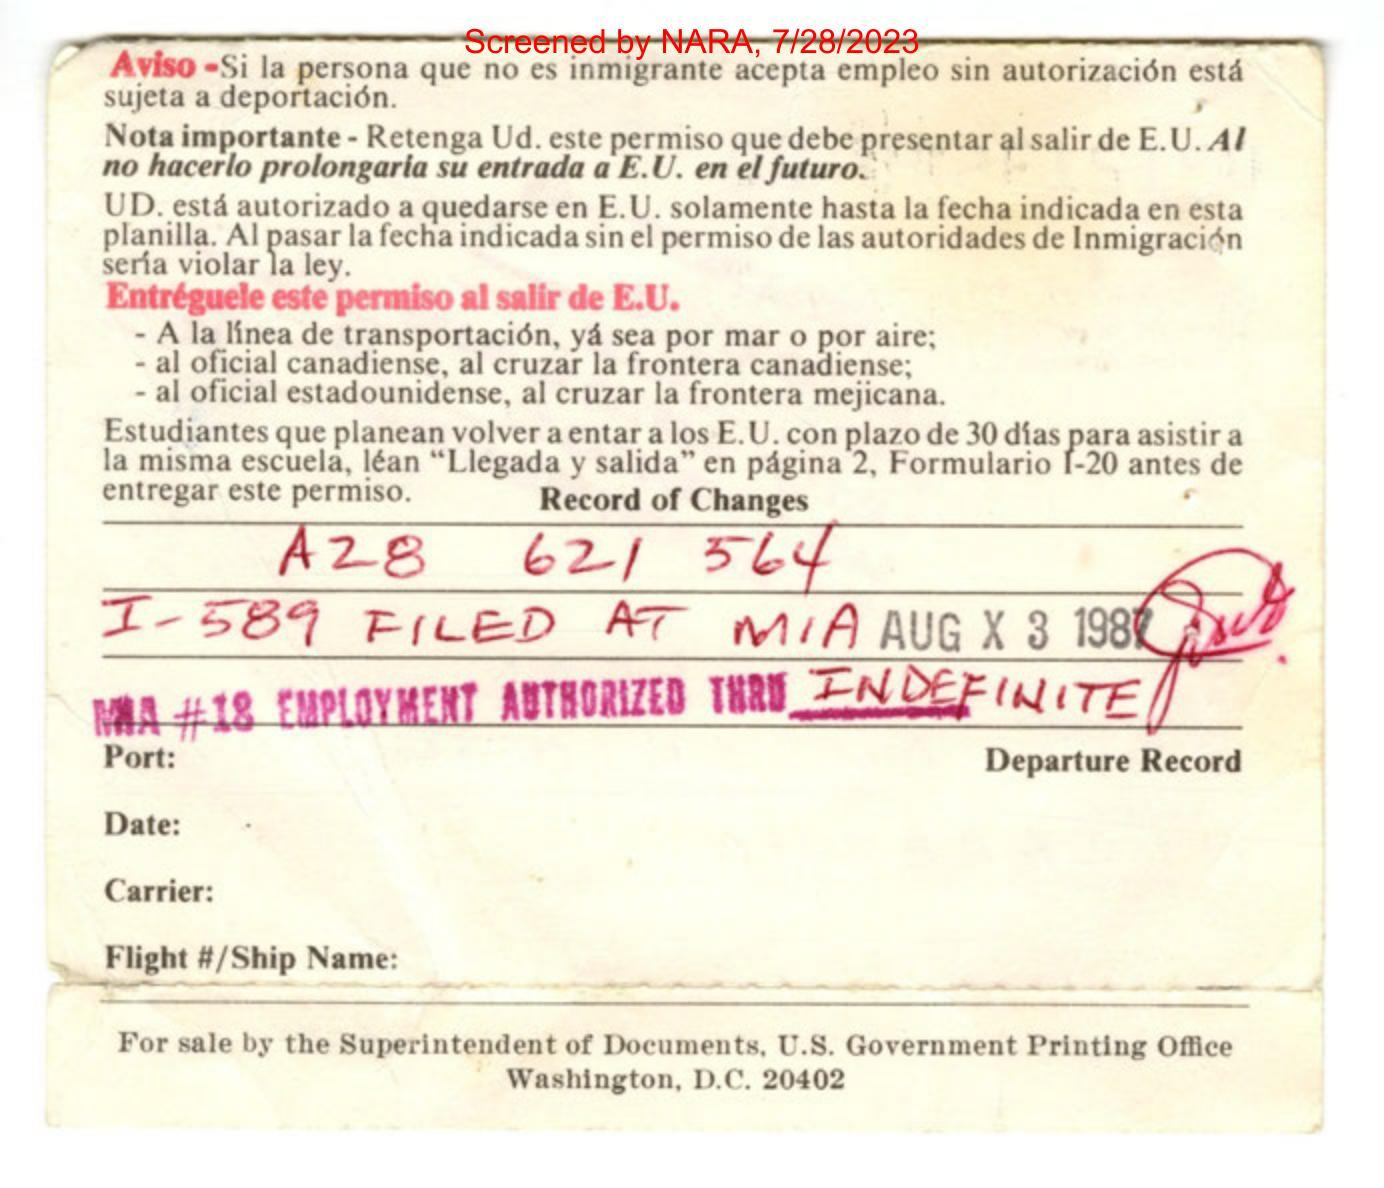 Screened by NARA, 7/28/2023
Aviso - Si la persona que no es inmigrante acepta empleo sin autorización está
sujeta a deportación.
Nota importante - Retenga Ud. este permiso que debe presentar al salir de E.U. Al
no hacerlo prolongaría su entrada a E.U. en el futuro.
UD. está autorizado a quedarse en E.U. solamente hasta la fecha indicada en esta
planilla. Al pasar la fecha indicada sin el permiso de las autoridades de Inmigración
sería violar la ley.
Entréguele este permiso al salir de E.U.
- A la línea de transportación, yá sea por mar o por aire;
- al oficial canadiense, al cruzar la frontera canadiense;
- al oficial estadounidense, al cruzar la frontera mejicana.
Estudiantes que planean volver a entar a los E.U. con plazo de 30 días para asistir a
la misma escuela, léan “Llegada y salida” en página 2, Formulario I-20 antes de
entregar este permiso.
Record of Changes
A28 621 564
I-589 FILED AT MIA AUG X 3 1987
MIA #18 EMPLOYMENT AUTHORIZED THRU INDEFINITE
Port: Departure Record
Date:
Carrier:
Flight #/Ship Name:
For sale by the Superintendent of Documents, U.S. Government Printing Office
Washington, D.C. 20402